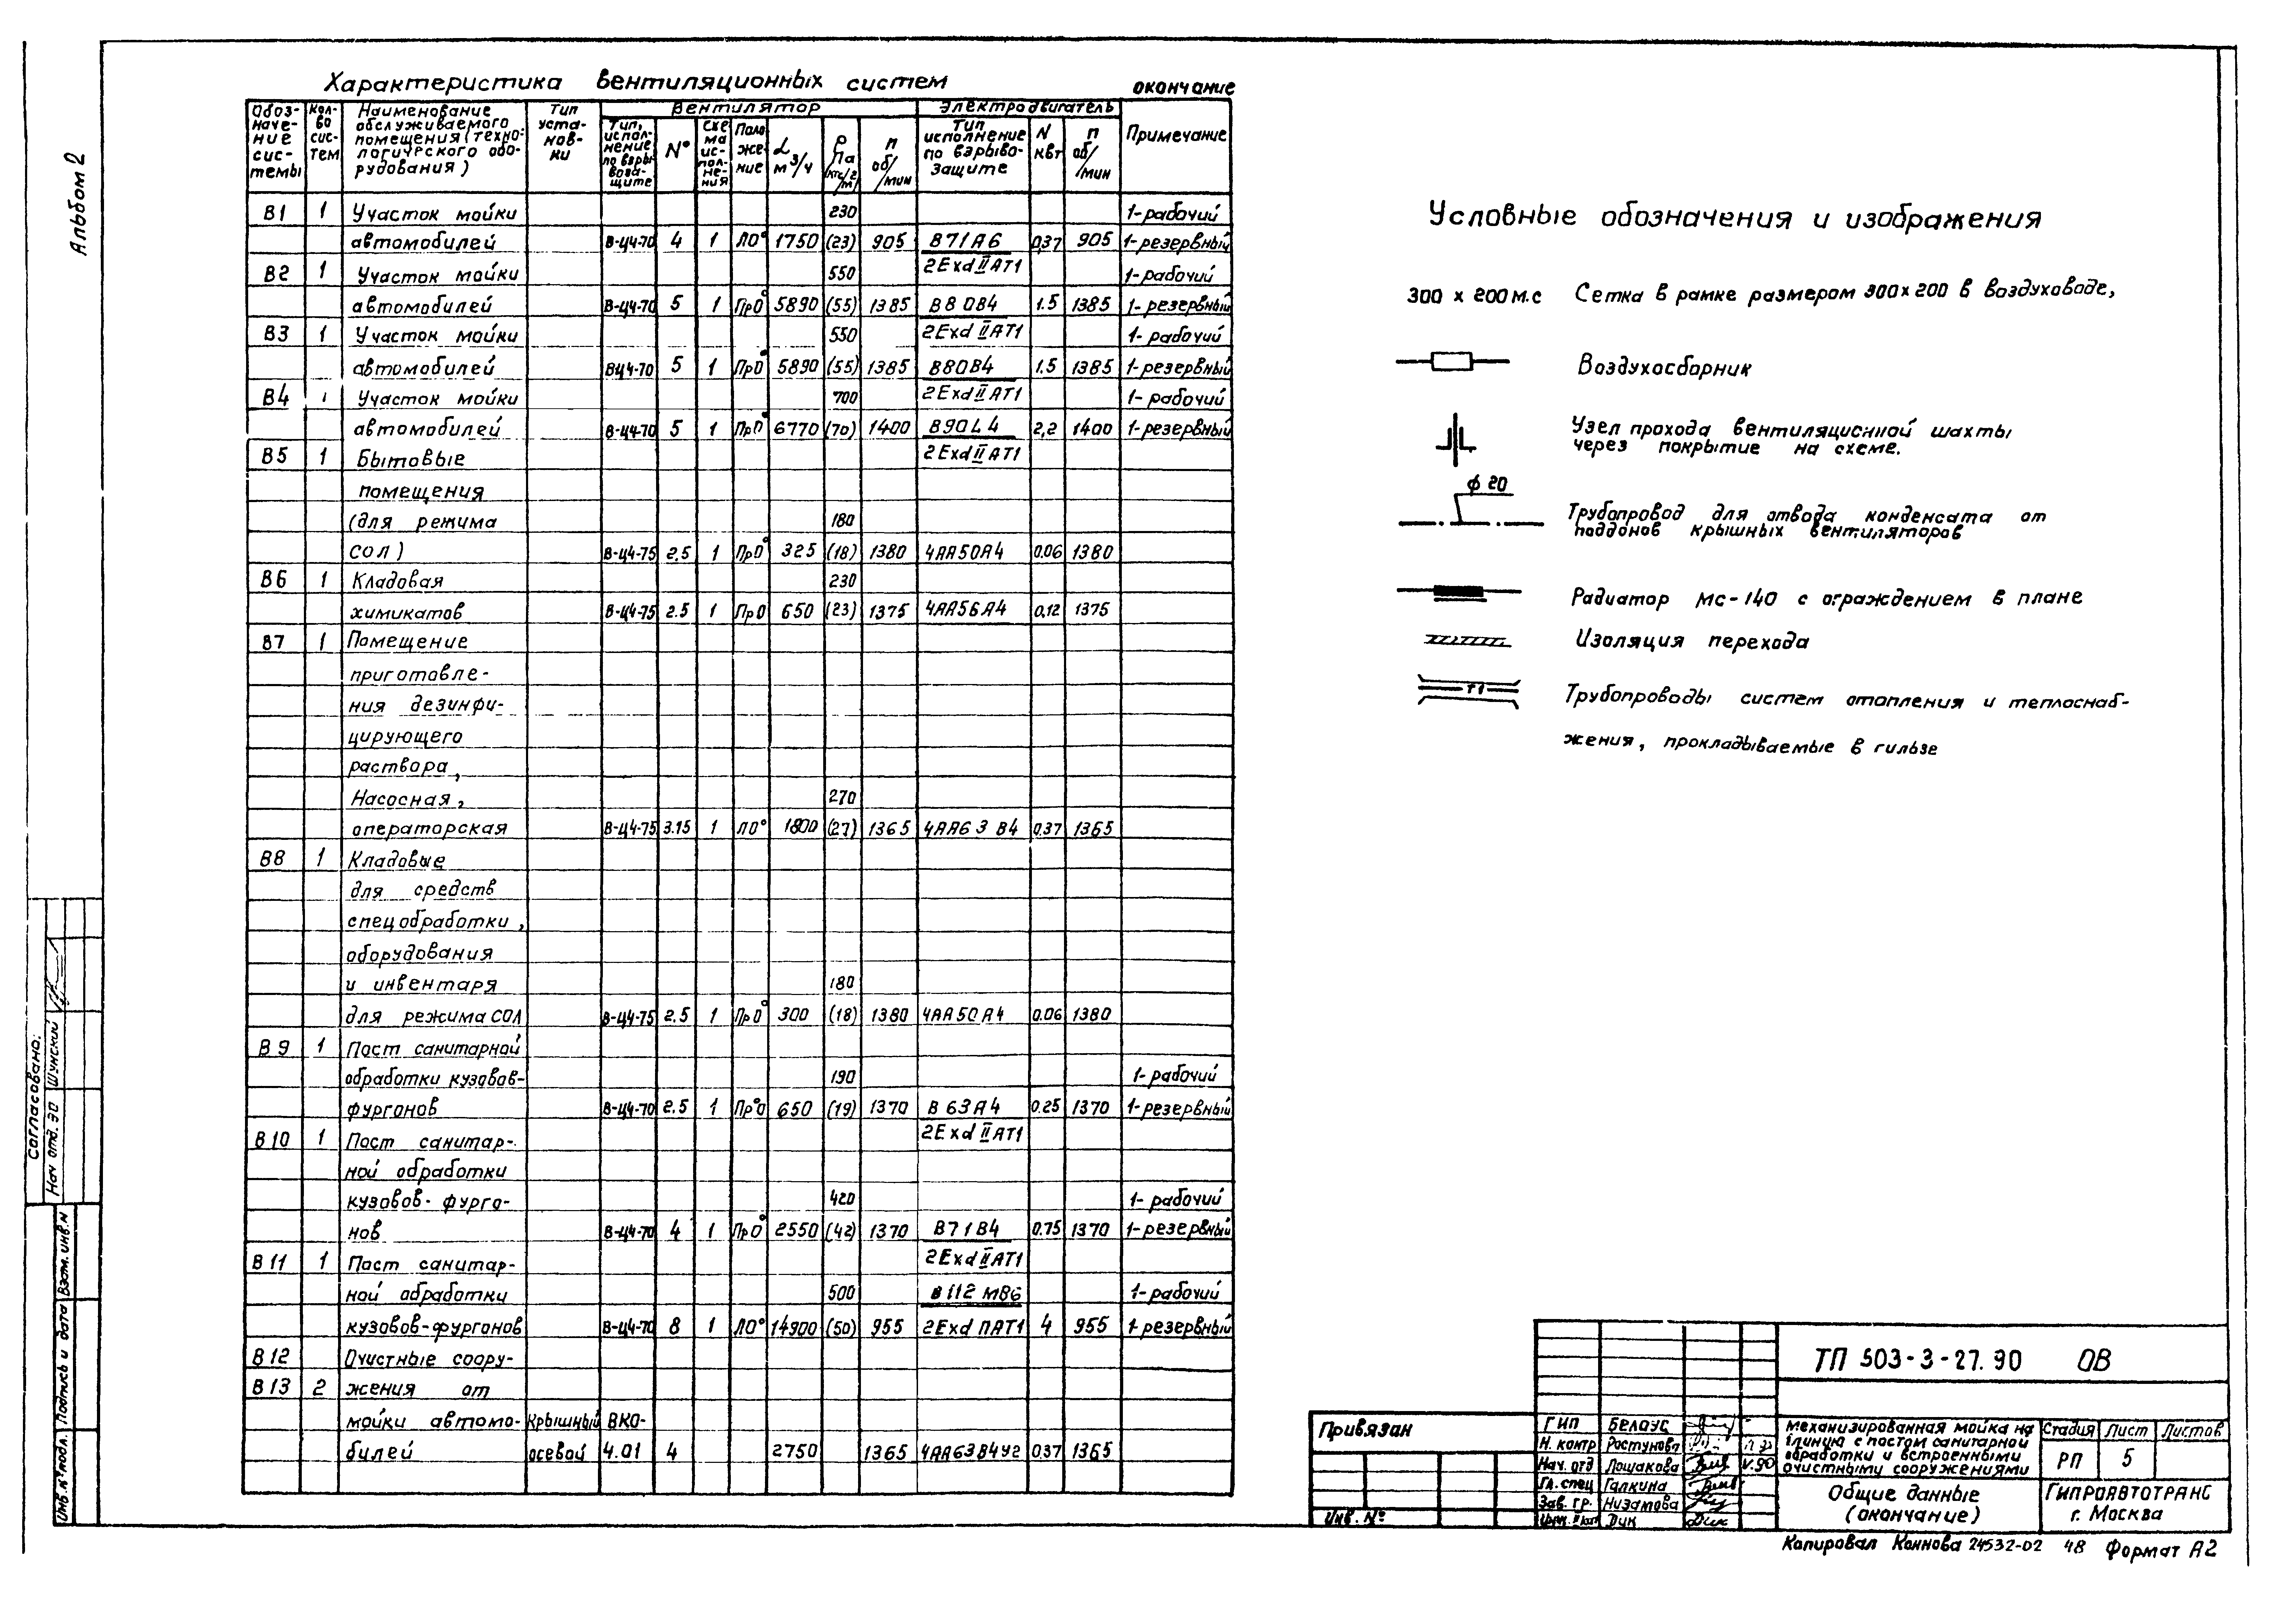 Альбом 2
Характеристика вентиляционных систем
окончание
Обоз-
наче-
ние
сис-
темы
Кол-
во
сис-
тем
Наименование
обслуживаемого
помещения (техно-
логического обо-
рудования)
Тип
уста-
нов-
ки
Вентилятор
Тип,
испол-
нение
по взры
воза-
щите
N°
Схе
ма
ис-
пол-
не-
ния
Поло
же-
ние
L
м³/ч
Р
Па
(кгс/
м²)
n
об/
мин
Электродвигатель
Тип
исполнение
по взрыво-
защите
N
квт
n
об/
мин
Примечание
В1 1 Участок мойки 230 1-рабочий
автомобилей В-Ц4-70 4 1 Л0° 1750 (23) 905 В71А6 0,37 905 1-резервный
В2 1 Участок мойки 550 2ЕxdIIАТ1 1-рабочий
автомобилей В-Ц4-70 5 1 Пр0° 5890 (55) 1385 В80В4 1.5 1385 1-резервный
В3 1 Участок мойки 550 2ЕxdIIАТ1 1-рабочий
автомобилей ВЦ4-70 5 1 Пр0° 5890 (55) 1385 В80В4 1,5 1385 1-резервный
В4 1 Участок мойки 700 2ЕxdIIАТ1 1-рабочий
автомобилей В-Ц4-70 5 1 Пр0° 6770 (70) 1400 В90L4 2,2 1400 1-резервный
В5 1 Бытовые 2ЕxdIIАТ1
помещения
(для режима 180
СОЛ) В-Ц4-75 2,5 1 Пр0° 325 (18) 1380 4АА50А4 0.06 1380
В6 1 Кладовая 230
химикатов В-Ц4-75 2.5 1 Пр0 650 (23) 1375 4АА56А4 0,12 1375
В7 1 Помещение
приготовле-
ния дезинфи-
цирующего
раствора,
Насосная, 270
операторская В-Ц4-75 3.15 1 Л0° 1800 (27) 1365 4АА63В4 0,37 1365
В8 1 Кладовые
для средств
спецобработки,
оборудования
и инвентаря 180
для режима СОЛ В-Ц4-75 2.5 1 Пр0° 300 (18) 1380 4АА50А4 0.06 1380
В9 1 Пост санитарной
обработки кузовов- 190 1-рабочий
фургонов В-Ц4-70 2.5 1 Пр°0 650 (19) 1370 В63А4 0.25 1370 1-резервный
В10 1 Пост санитар- 2ЕxdIIАТ1
ной обработки
кузовов-фурго- 420 1-рабочий
нов В-Ц4-70 4 1 Пр0° 2550 (42) 1370 В71В4 0.75 1370 1-резервный
В11 1 Пост санитар- 2ЕxdIIАТ1
ной обработки 500 В112МВ6 1-рабочий
кузовов-фургонов В-Ц4-70 8 1 Л0° 14900 (50) 955 2ЕxdПАТ1 4 955 1-резервный
В12 Очистные соору-
В13 2 жения от
мойки автомо- Крышный ВКО-
билей осевой 4.01 4 2750 1365 4АА63В4У2 0,37 1365
Условные обозначения и изображения
300 х 200 м.с Сетка в рамке размером 300х200 в воздуховоде,
Воздухосборник
Узел прохода вентиляционной шахты
через покрытие на схеме.
ф 20
Трубопровод для отвода конденсата от
поддонов крышных вентиляторов
Радиатор МС-140 с ограждением в плане
Изоляция перехода
Т1
Трубопроводы систем отопления и теплоснаб-
жения, прокладываемые в гильзе
Согласовано:
Нач отд. ЭО Шунский
Взам. инв. N
Подпись и дата
Инв. N° подл.
Привязан
Инв. N°
ТП 503-3-27.90 ОВ
ГИП Белоус
Н. контр Ростунова
Нач. отд Лошакова V.90
Гл. спец Галкина
Зав. гр. Низамова
Дик
Механизированная мойка на
1 линию с постом санитарной
обработки и встроенными
очистными сооружениями
Стадия Лист Листов
РП 5
Общие данные
(окончание)
ГИПРОАВТОТРАНС
г. Москва
Копировал Коннова 24532-02 48 Формат А2